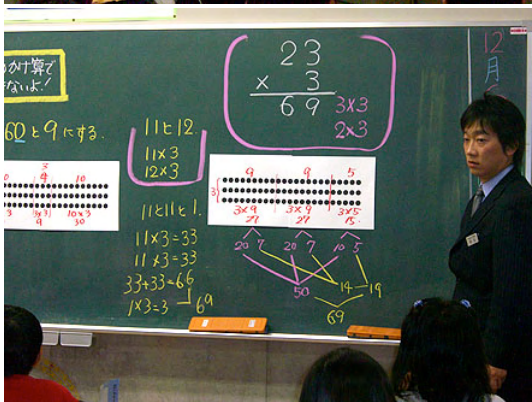 かけ算で
ないよ!
60と9にする。
3
4 10
3 3×3 10×3
9 30
11と12.
11×3
12×3
11と11と1.
11×3=33
11×3=33
33+33=66
1×3=3 69
23
× 3
69
3×3
2×3
9 9 5
3
3×9 3×9 3×5
27 27 15.
20 7 20 7 10 5
50 14 19
69
12
月